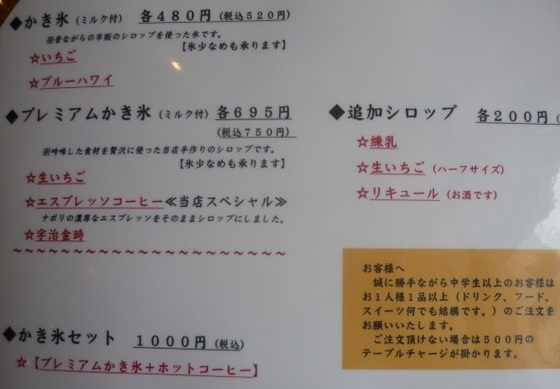 ◆かき氷（ミルク付） 各480円（税込520円）
※昔ながらの市販のシロップを使った氷です。
【氷少なめも承ります】
☆いちご
☆ブルーハワイ
◆プレミアムかき氷（ミルク付）各695円
（税込750円）
※吟味した食材を贅沢に使った当店手作りのシロップです。
【氷少なめも承ります】
☆生いちご
☆エスプレッソコーヒー≪当店スペシャル≫
ナポリの濃厚なエスプレッソをそのままシロップにしました。
☆宇治金時
～～～～～～～～～～～～～～～～～～～～
◆かき氷セット 1000円（税込）
☆【プレミアムかき氷＋ホットコーヒー】
◆追加シロップ 各200円（
☆練乳
☆生いちご（ハーフサイズ）
☆リキュール（お酒です）
お客様へ
誠に勝手ながら中学生以上のお客様は
お1人様1品以上（ドリンク、フード、
スイーツ何でも結構です。）のご注文を
お願いいたします。
ご注文頂けない場合は500円の
テーブルチャージが掛かります。